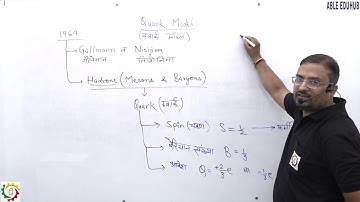 ABLE EDUHUB
Quark Model
(क्वार्क मॉडल)
1964
Gellmann व Nisijima
गैलमैन निशिजिमा
Hadrons (Mesons & Baryons)
Quark (क्वार्क)
Spin (चक्रण) S = 1/2
बेरियान संख्या B = 1/3
आवेश Q = +2/3 e या -1/3 e